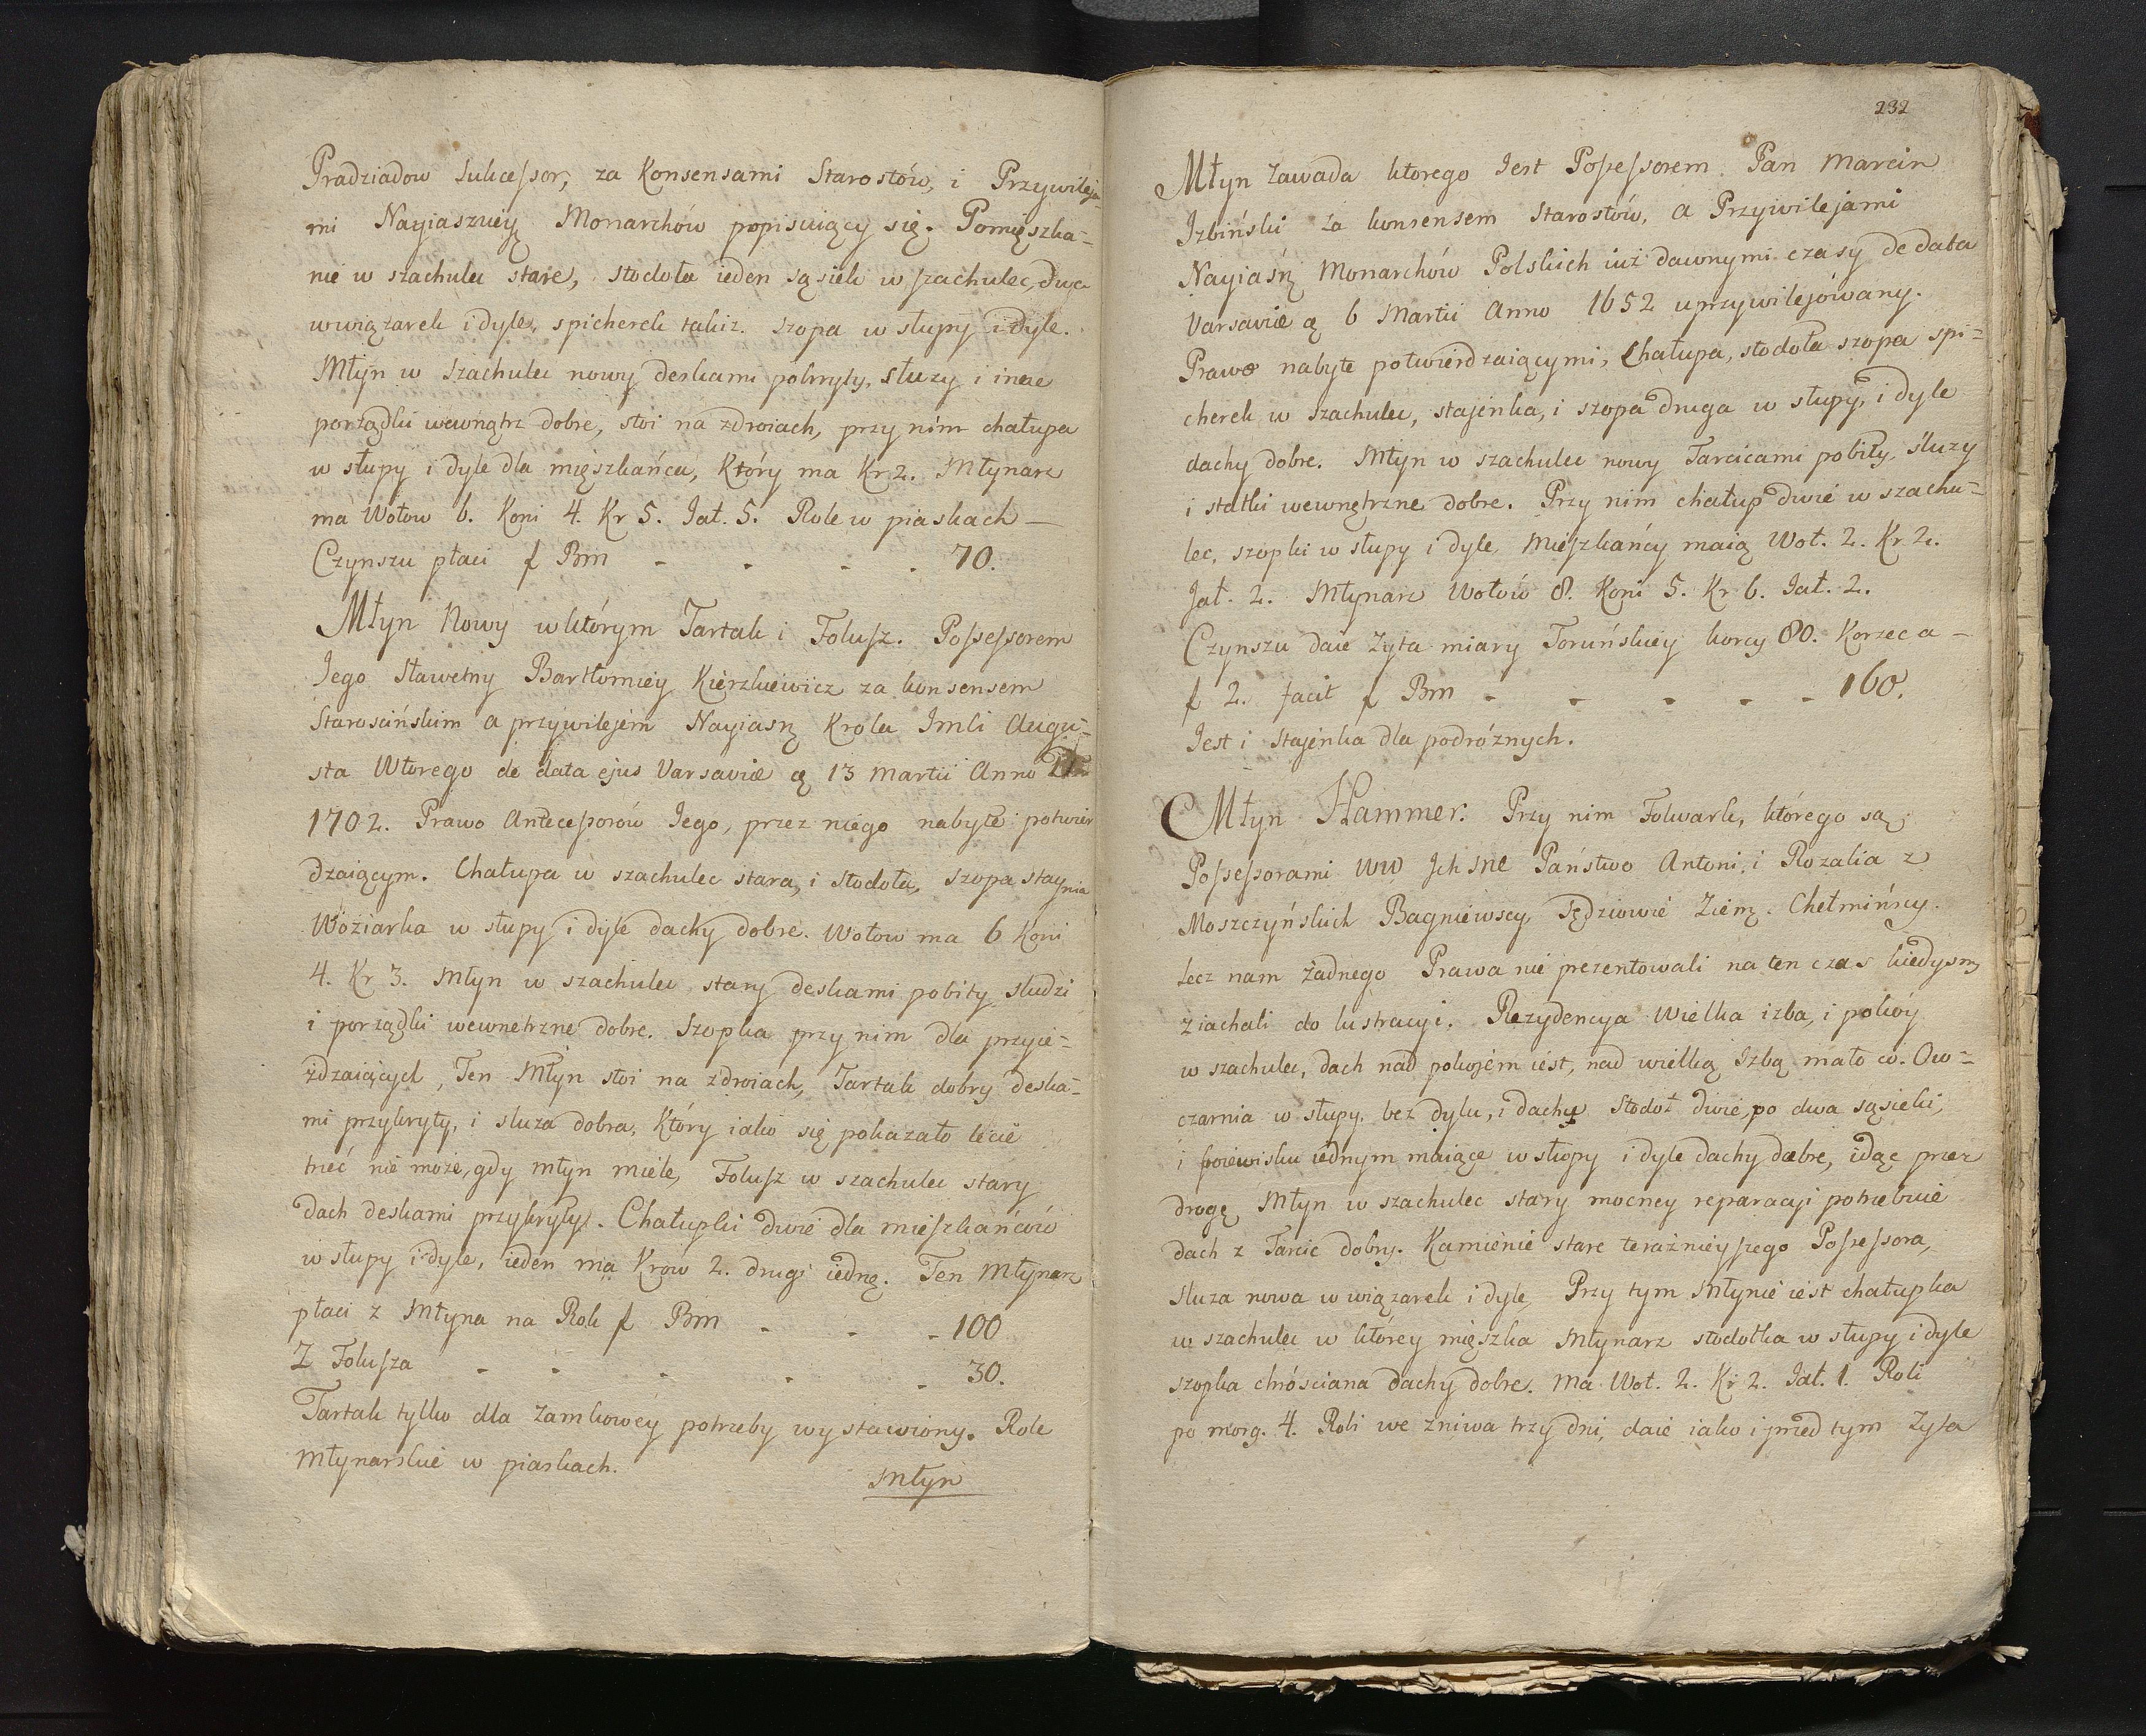 Pradziadow Sukcessor, za Konsensami Starostów, i Przywileja-
mi Nayiaszniey Monarchów popisuiący się. Pomięszka-
nie w szachulec stare, stodoła ieden sąsiek w szachulec, dwa
wwiązarek i dyle, spicherek takiz. szopa w słupy i dyle.
Młyn w szachulec nowy deskami pokryty, sluzy i insze
porządki wewnątrz dobre, stoi na zdroiach, przy nim chałupa
w słupy i dyle dla mięszkańca, Który ma Kr 2. Młynarz
ma Wołow 6. Koni 4. Kr 5. Jał. 5. Role w piaskach —
Czynszu płaci f Bm - - - - 70.
Młyn Nowy w którym Tartak i Folusz. Possessorem
Jego Sławetny Bartłomiey Kierzkiewicz za konsensem
Starościńskim a przywilejem Nayiasn Krola Imći Augu-
sta Wtorego de data ejus Varsaviæ 13 Martii Anno
1702. Prawo Antecessorów Jego, przez niego nabyte potwier
dzaiącym. Chałupa w szachulec stara, i Stodoła, szopa staynia
Woziarka w słupy i dyle dachy dobre. Wołow ma 6 Koni
4. Kr 3. Młyn w szachulec stary deskami pobity sludzi
i porządki wewnetrzne dobre. Szopka przy nim dla przyie-
żdzaiących, Ten Młyn stoi na zdroiach, Tartak dobry deska-
mi przykryty, i sluza dobra, Który iako się pokazało lecie
trzeć nie może, gdy młyn miele, Folusz w szachulec stary
dach deskami przykryty. Chałupki dwie dla mieszkańców
w słupy i dyle, ieden ma Krow 2. drugi iednę. Ten Młynarz
płaci z Młyna na Rok f Bm - - - 100
Z Folusza - - - - - 30.
Tartak tylko dla Zamkowey potrzeby wystawiony. Role
Młynarskie w piaskach.
Młyn
232
Młyn Zawada ktorego Jest Possessorem Pan Marcin
Izbiński za konsensem Starostów, a Przywilejami
Nayiaśn Monarchów Polskich iuż dawnymi czasy de data
Varsaviæ 6 Martii Anno 1652 uprzywilejówany.
Prawo nabyte potwierdzaiącymi, Chałupa, stodoła szopa spi-
cherek w szachulec, stajenka, i szopa druga w słupy, i dyle
dachy dobre. Młyn w szachulec nowy Tarcicami pobity, śluzy
i statki wewnętrzne dobre. Przy nim chałup dwie w szachu-
lec, szopki w słupy i dyle, Mieszkańcy maią Woł. 2. Kr 2.
Jał. 2. Młynarz Wołów 8. Koni 5. Kr 6. Jał. 2.
Czynszu daie Żyta miary Toruńskiey korcy 80. Korzec a —
f 2. facit f Bm - - - - - 160.
Jest i Stajenka dla podróżnych.
Młyn Hammer. Przy nim Folwark, którego są
Possessorami WW Ich Państwo Antoni, i Rozalia z
Moszczyńskich Bagniewscy, Sędziowie Ziem. Chełmińscy.
lecz nam żadnego Prawa nie prezentowali na ten czas kiedysm
ziachali do lustracyi. Rezydencya Wielka izba, i pokóy
w szachulec, dach nad pokojem iest, nad wielką Izbą mało co. Ow-
czarnia w słupy, bez dylu, i dachy Stodoł dwie, po dwa sąsieki,
i boiewisku iednym maiące w słupy i dyle dachy dobre, idąc przez
drogę Młyn w szachulec stary mocney reparacyi potrzebuie
dach z Tarcic dobry. Kamienie stare teraźnieyszego Possessora,
sluza nowa w wiązarek i dyle, Przy tym Młynie iest chałupka
w szachulec w którey mięszka Młynarz stodołka w słupy i dyle
szopka chróściana dachy dobre. Ma Woł. 2. Kr 2. Jał. 1. Roli
po morg. 4. Roli we żniwa trzy dni, daie iako i przed tym Zyta